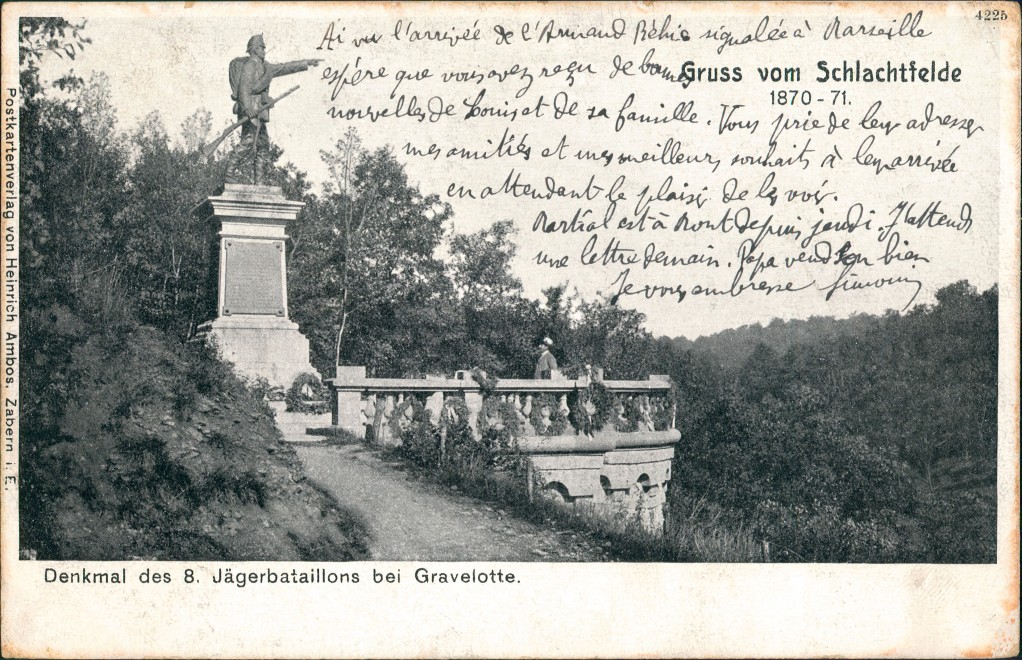 4225
Ai vu l'arrivée de l'Armand Béhic signalée à Marseille
espère que vous avez reçu de bonnes
nouvelles de Louis et de sa famille. Vous prie de leur adresser
mes amitiés et mes meilleurs souhaits à leur arrivée
en attendant le plaisir de les voir.
est à depuis jeudi. J'attends
une lettre demain. Papa vend son bien
Je vous embrasse
Gruss vom Schlachtfelde
1870-71.
Postkartenverlag von Heinrich Ambos. Zabern i. E.
Denkmal des 8. Jägerbataillons bei Gravelotte.